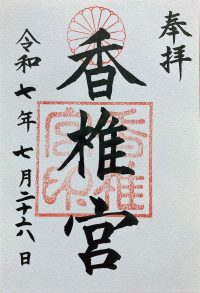 奉拝
香椎宮
令和七年七月二十六日
香椎
宮印